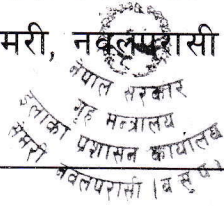 मरी, नवलपरासी
नेपाल सरकार
गृह मन्त्रालय
इलाका प्रशासन कार्यालय
सेमरी नवलपरासी (ब सु प